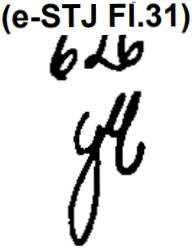 (e-STJ Fl.31)
626